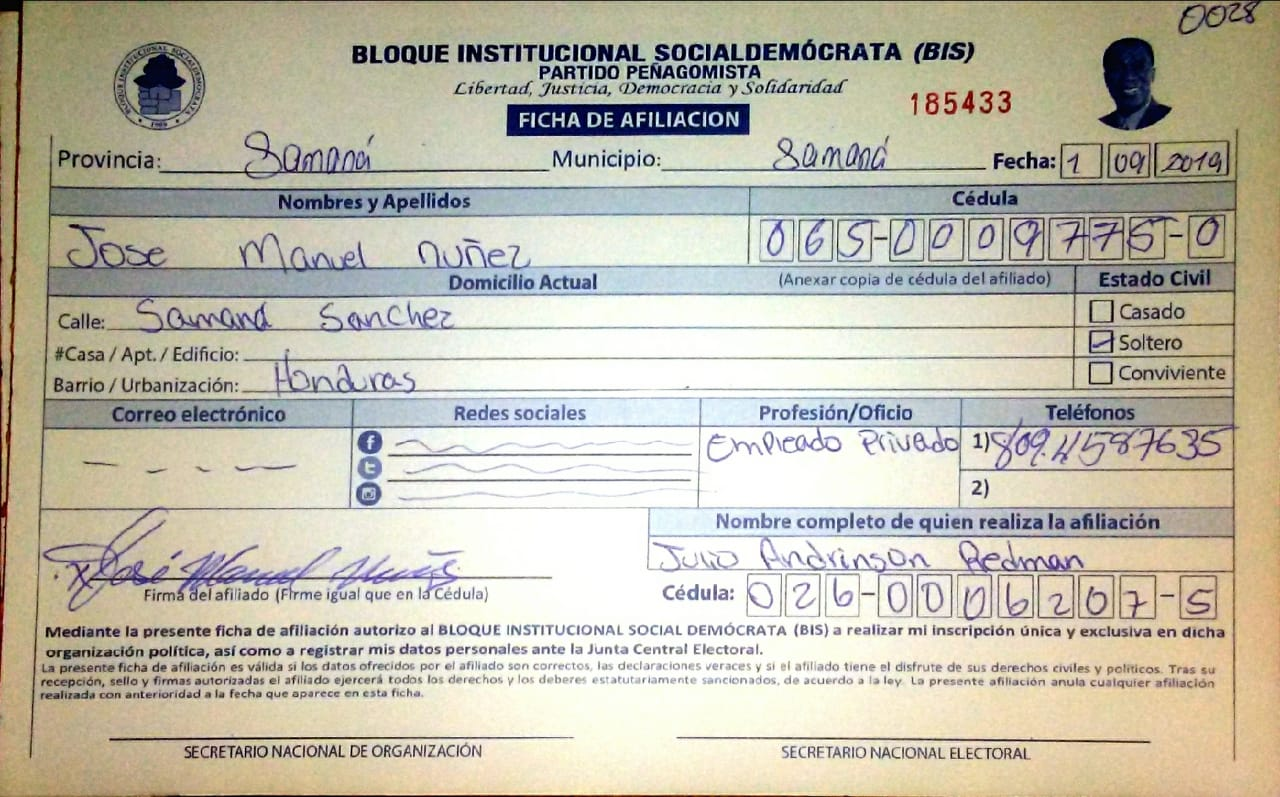 0028
BLOQUE INSTITUCIONAL SOCIALDEMÓCRATA
1989
BLOQUE INSTITUCIONAL SOCIALDEMÓCRATA (BIS)
PARTIDO PEÑAGOMISTA
Libertad, Justicia, Democracia y Solidaridad
185433
FICHA DE AFILIACION
Provincia: Samaná Municipio: Samaná Fecha: 1 09 2019
Nombres y Apellidos Cédula
Jose Manuel Nuñez 065-0009775-0
Domicilio Actual (Anexar copia de cédula del afiliado) Estado Civil
Calle: Samaná Sanchez Casado
#Casa / Apt. / Edificio: Soltero
Barrio / Urbanización: Honduras Conviviente
Correo electrónico Redes sociales Profesión/Oficio Teléfonos
Empleado Privado 1) 809.4587635
2)
Nombre completo de quien realiza la afiliación
Julio Andrinson Redman
José Manuel Nuñez
Firma del afiliado (Firme igual que en la Cédula) Cédula: 026-0006207-5
Mediante la presente ficha de afiliación autorizo al BLOQUE INSTITUCIONAL SOCIAL DEMÓCRATA (BIS) a realizar mi inscripción única y exclusiva en dicha
organización política, así como a registrar mis datos personales ante la Junta Central Electoral.
La presente ficha de afiliación es válida si los datos ofrecidos por el afiliado son correctos, las declaraciones veraces y si el afiliado tiene el disfrute de sus derechos civiles y políticos. Tras su
recepción, sello y firmas autorizadas el afiliado ejercerá todos los derechos y los deberes estatutariamente sancionados, de acuerdo a la ley. La presente afiliación anula cualquier afiliación
realizada con anterioridad a la fecha que aparece en esta ficha.
SECRETARIO NACIONAL DE ORGANIZACIÓN SECRETARIO NACIONAL ELECTORAL